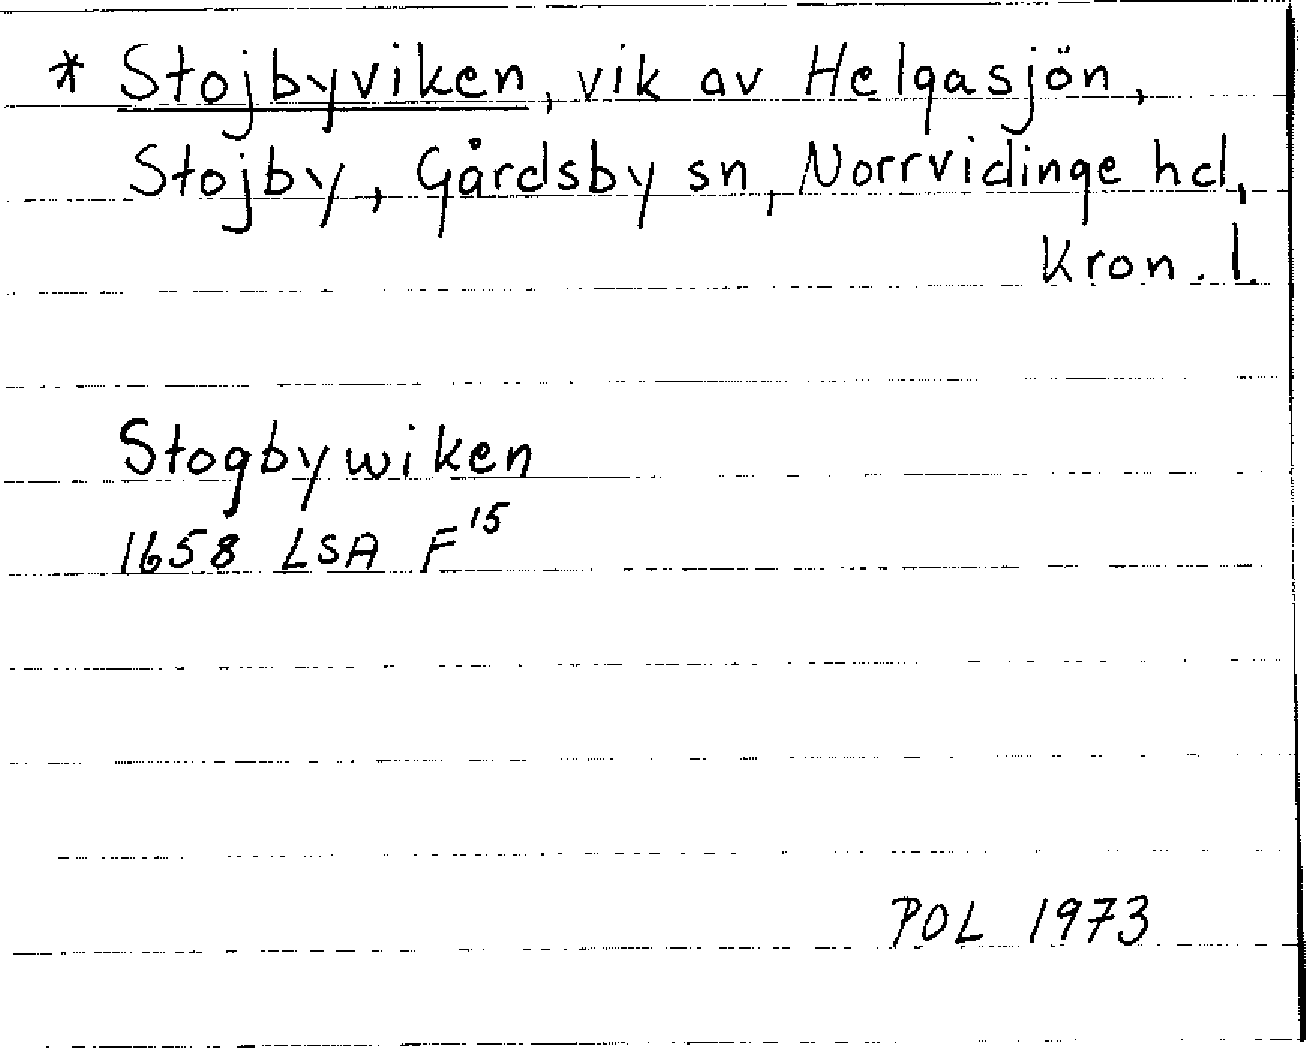 * Stojbyviken, vik av Helgasjön,
Stojby, Gårdsby sn, Norrvidinge hd,
Kron. l.
Stogbywiken
1658 LSA F¹⁵
POL 1973